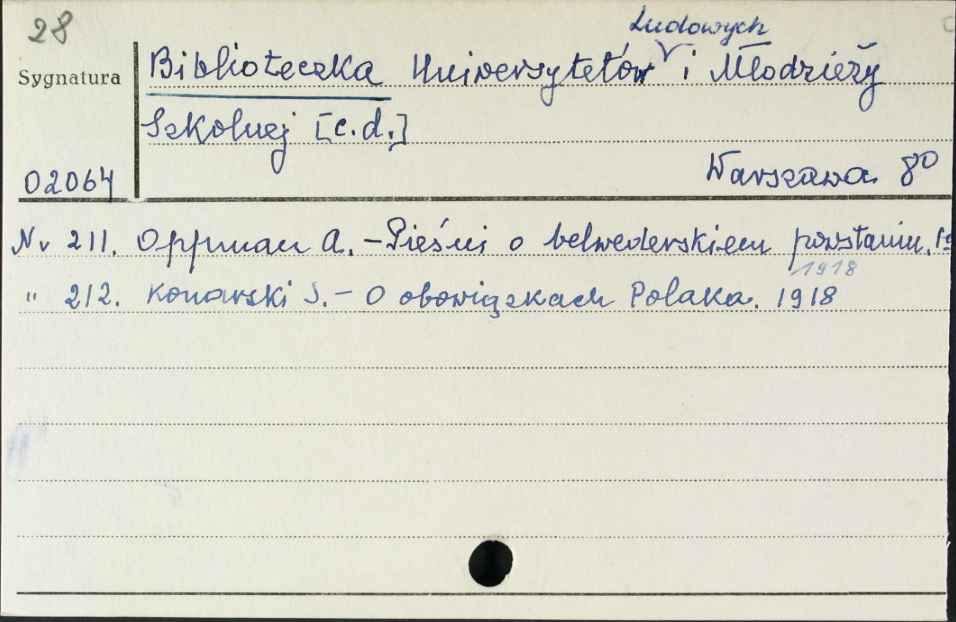 28
Ludowych
Sygnatura
Biblioteczka Uniwersytetów i Młodzieży
Szkolnej [c.d.]
02064
Warszawa 8⁰
Nr 211. Oppman A. - Pieśni o belwederskiem powstaniu. 19
1918
" 212. Konarski S. - O obowiązkach Polaka. 1918